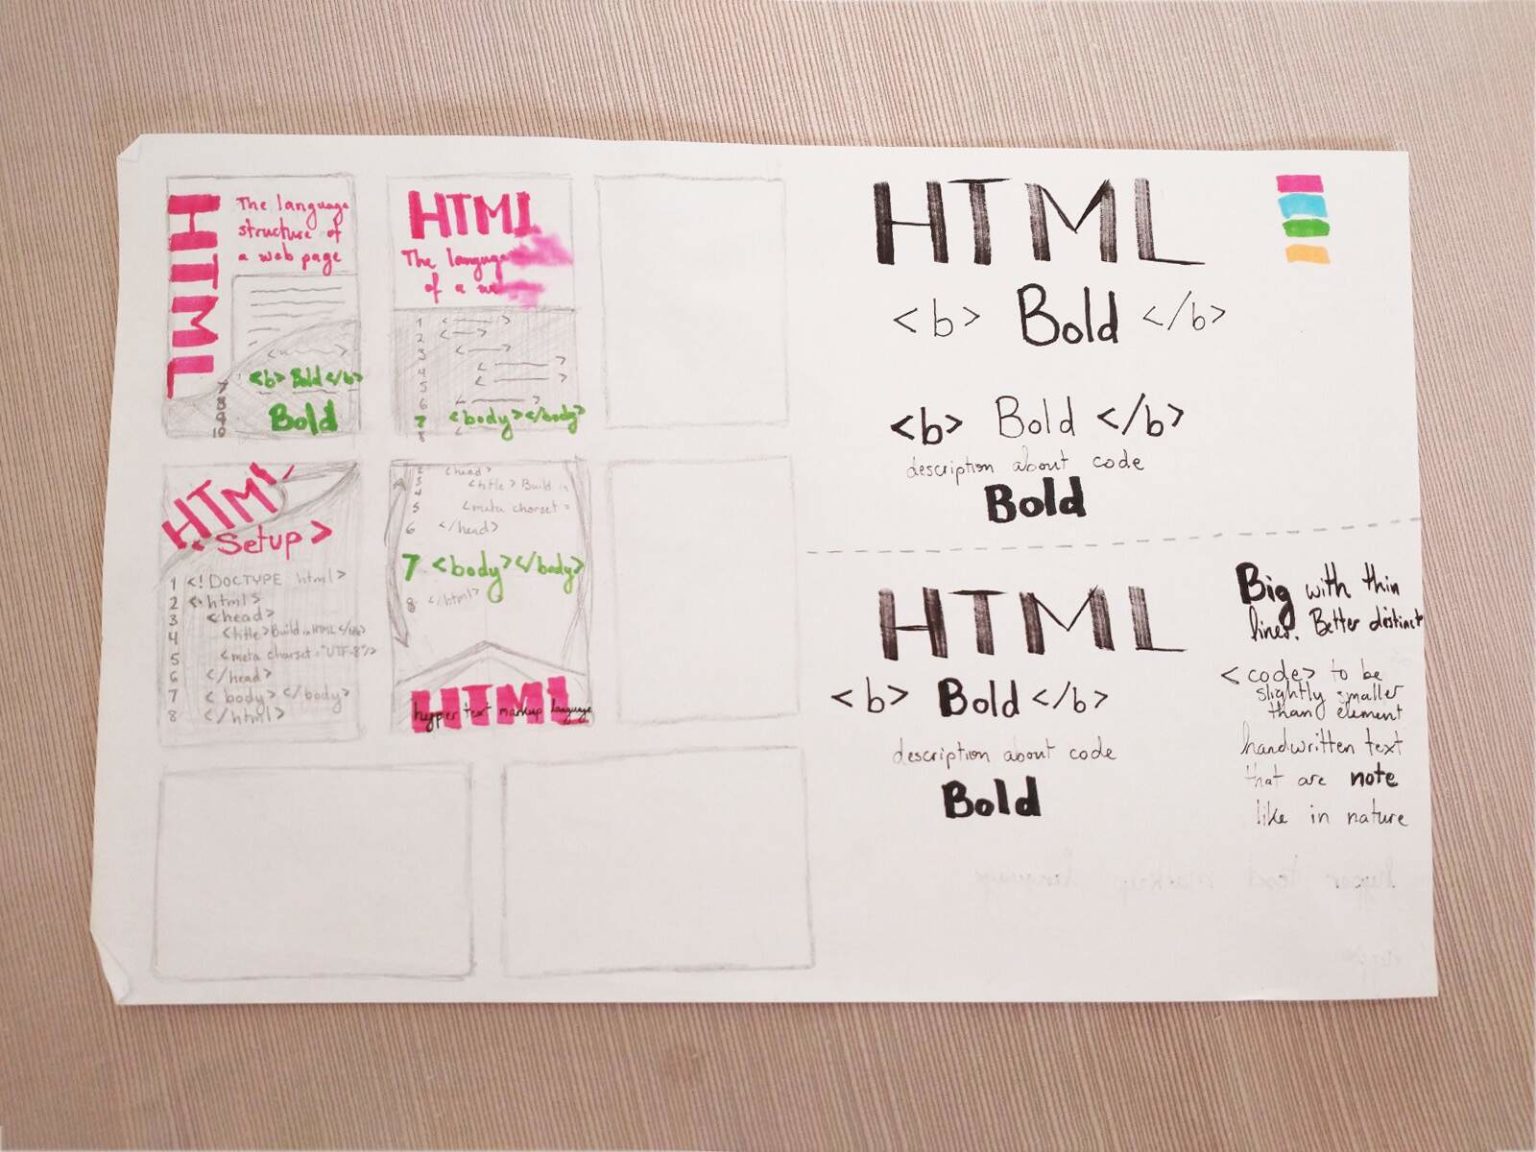 HTML
The language
structure of
a web page
7
8
9
10
<b> Bold </b>
Bold
HTML
The language
of a
1
2
3
4
5
6
7 <body></body>
8
HTML
<Setup>
1 <!DOCTYPE html>
2 <html>
3 <head>
4 <title>Build in HTML</title>
5 <meta charset="UTF-8"/>
6 </head>
7 <body></body>
8 </html>
2 <head>
3 <title>Build in
4
5 <meta charset=
6 </head>
7 <body></body>
8 </html>
HTML
hyper text markup language
HTML
<b> Bold </b>
<b> Bold </b>
description about code
Bold
HTML
<b> Bold </b>
description about code
Bold
Big with thin
liner. Better distinct
<code> to be
slightly smaller
than element
handwritten text
that are note
like in nature